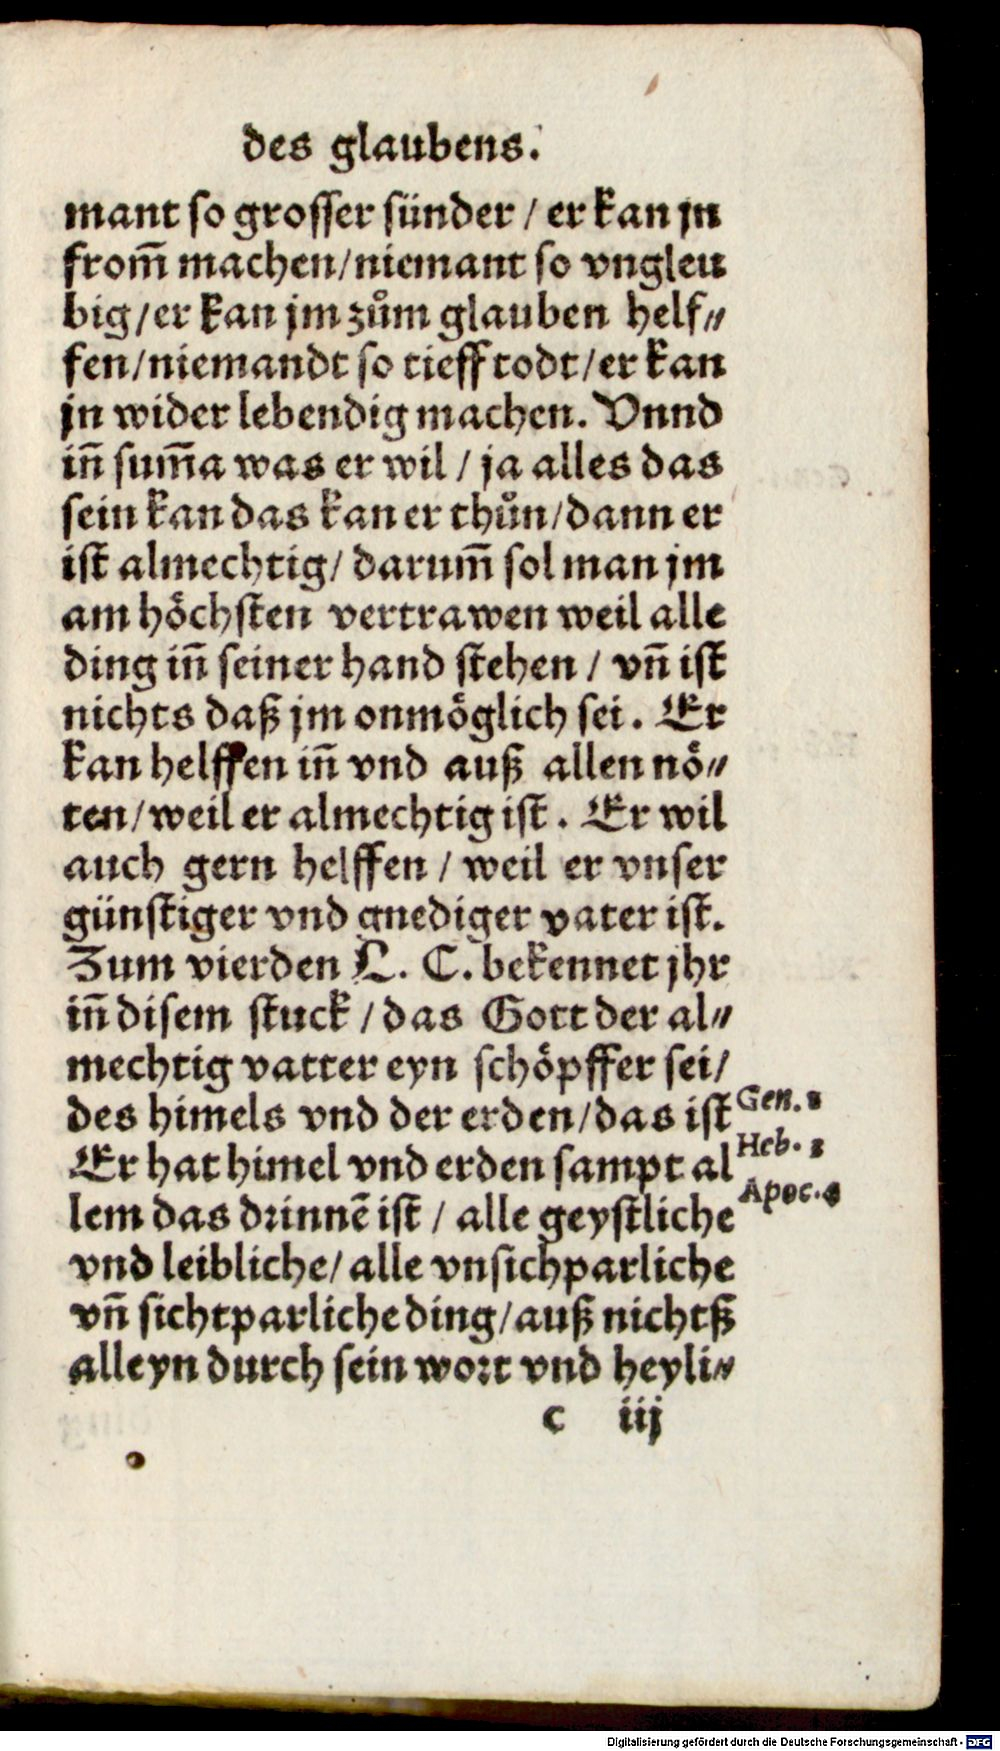 des glaubens.
mant so grosser sünder / er kan jn
from̅ machen/niemant so vngleu
big/er kan jm zům glauben helf⸗
fen/niemandt so tieff todt/er kan
jn wider lebendig machen. Vnnd
in̅ sum̅a was er wil / ja alles das
sein kan das kan er thůn/dann er
ist almechtig/ darum̅ sol man jm
am höchsten vertrawen weil alle
ding in̅ seiner hand stehen / vn̅ ist
nichts daß jm onmöglich sei. Er
kan helffen in̅ vnd auß allen nö⸗
ten/weil er almechtig ist. Er wil
auch gern helffen / weil er vnser
günstiger vnd gnediger vater ist.
Zum vierden L. C. bekennet jhr
in̅ disem stuck / das Gott der al⸗
mechtig vatter eyn schöpffer sei/
des himels vnd der erden/das ist
Gen. 1
Er hat himel vnd erden sampt al
Heb. 1
lem das drinne̅ ist / alle geystliche
Apoc. 4
vnd leibliche/ alle vnsichparliche
vn̅ sichtparliche ding/auß nichtß
alleyn durch sein wort vnd heyli⸗
c iij
Digitalisierung gefördert durch die Deutsche Forschungsgemeinschaft - DFG